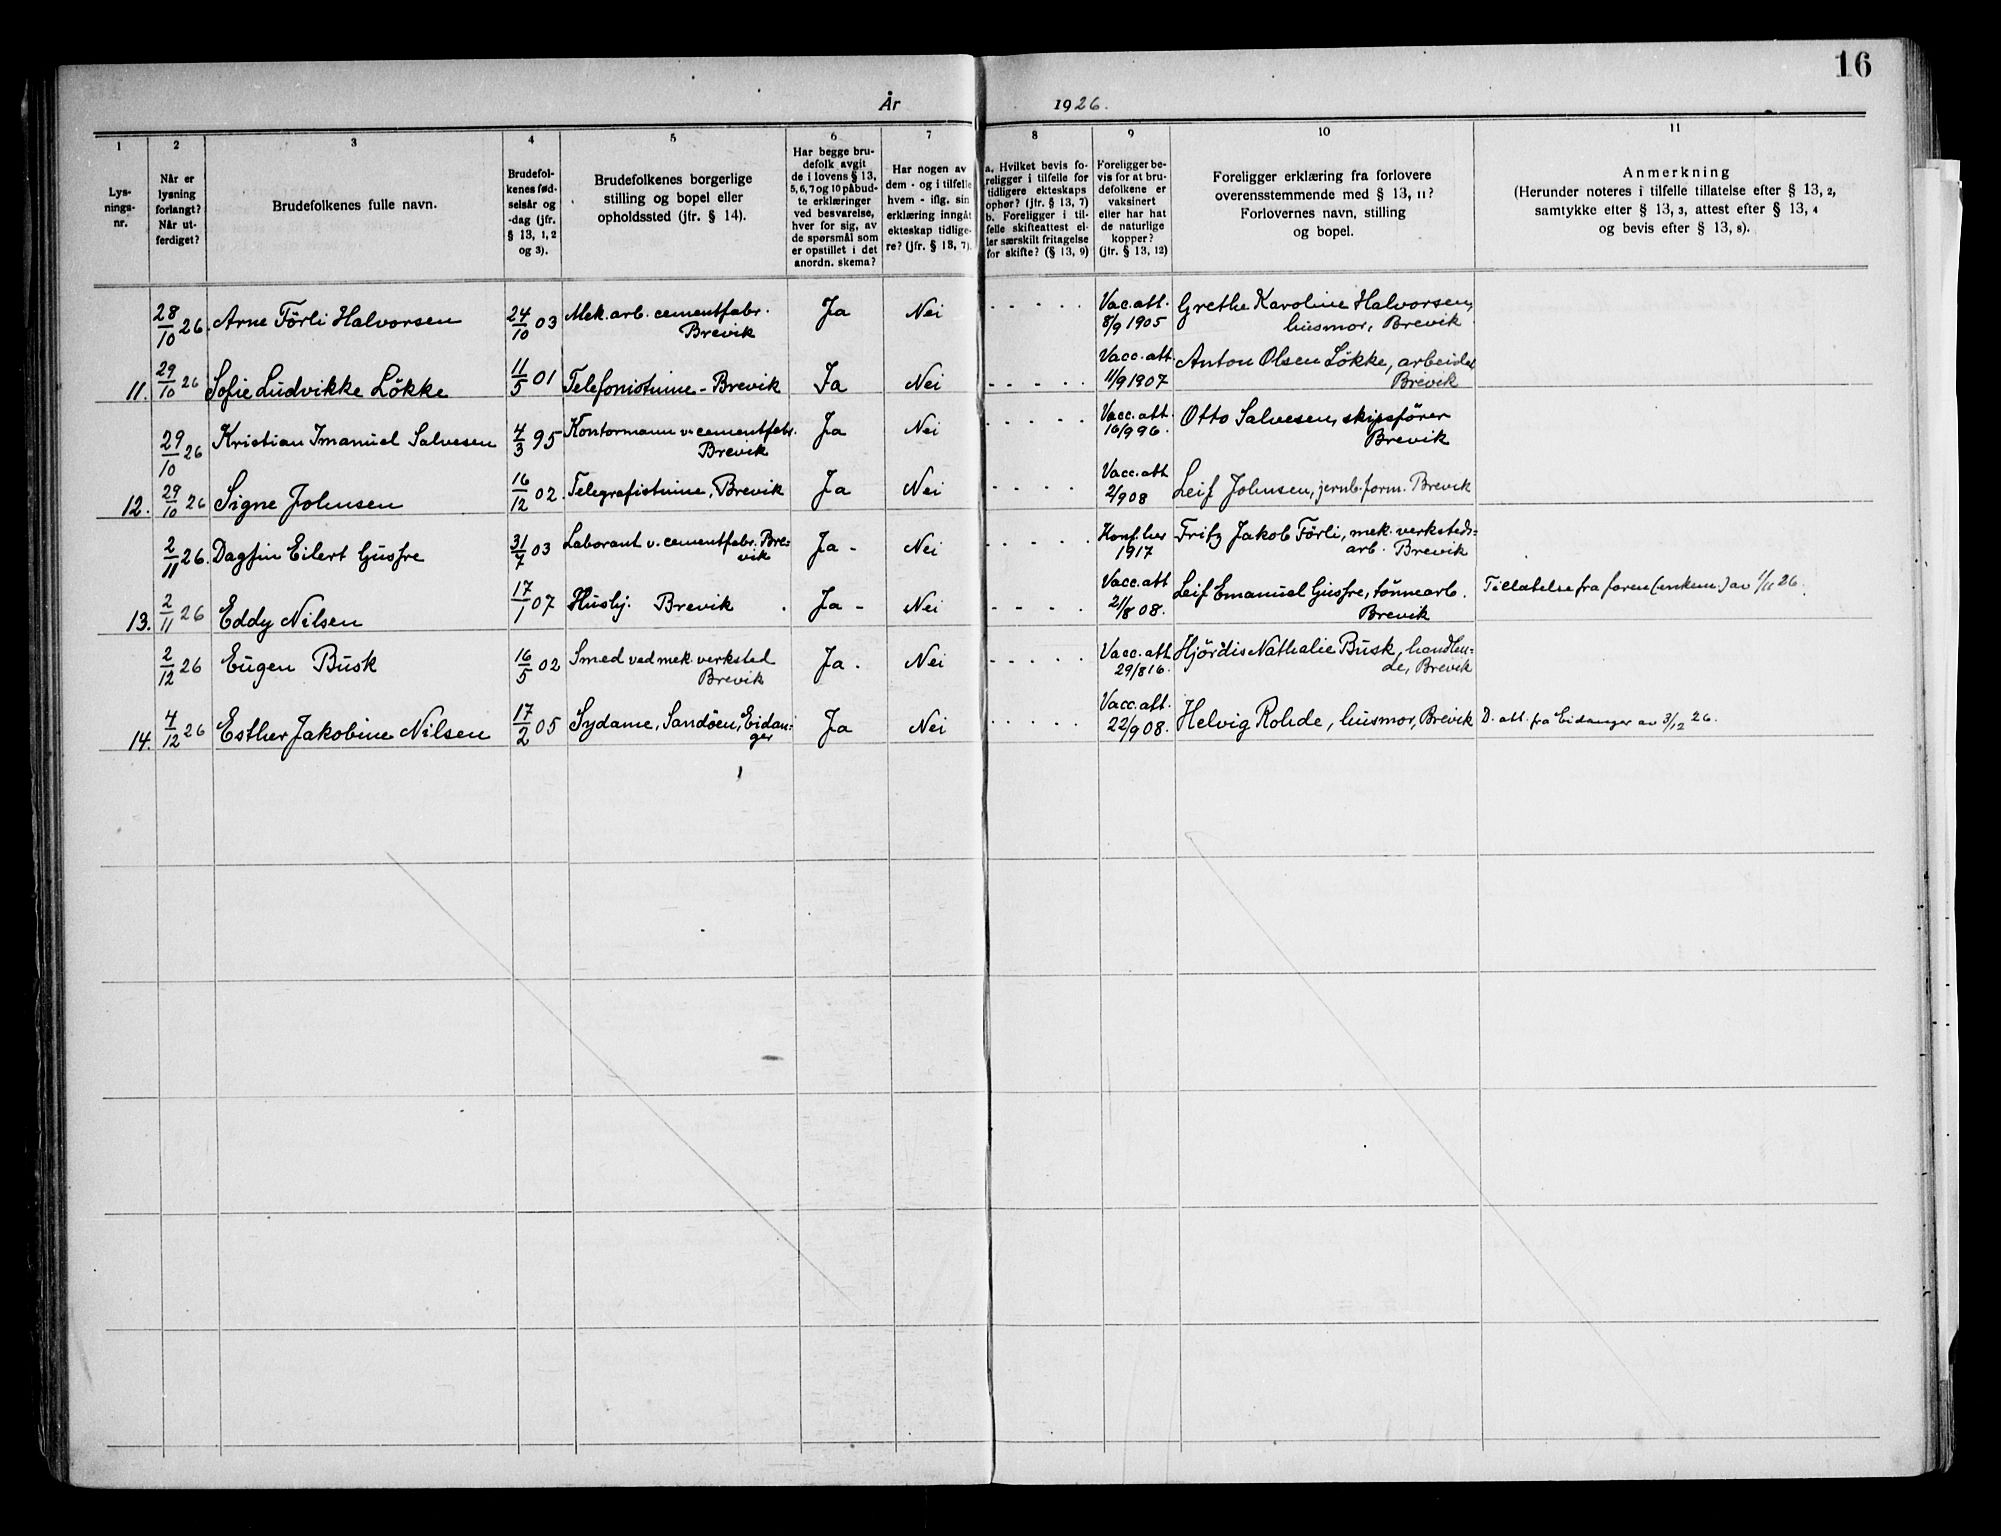 16
År 1926.
1 2 3 4 5 6 7 8 9 10 11
Lys-
nings-
nr.
Når er
lysning
forlangt?
Når ut-
ferdiget?
Brudefolkenes fulle navn.
Brudefol-
kenes fød-
selsår og
-dag (jfr.
§ 13, 1, 2
og 3).
Brudefolkenes borgerlige
stilling og bopel eller
opholdssted (jfr. § 14).
Har begge bru-
defolk avgit
de i lovens § 13,
5, 6, 7 og 10 påbud-
te erklæringer
ved besvarelse,
hver for sig, av
de spørsmål som
er opstillet i det
anordn. skema?
Har nogen av
dem - og i tilfelle
hvem - iflg. sin
erklæring inngåt
ekteskap tidlige-
re? (jfr. § 13, 7).
a. Hvilket bevis fo-
religger i tilfelle for
tidligere ekteskaps
ophør? (jfr. § 13, 7)
b. Foreligger i til-
felle skifteattest el-
ler særskilt fritagelse
for skifte? (§ 13, 9)
Foreligger be-
vis for at bru-
defolkene er
vaksinert
eller har hat
de naturlige
kopper?
(jfr. § 13, 12)
Foreligger erklæring fra forlovere
overensstemmende med § 13, 11?
Forlovernes navn, stilling
og bopel.
Anmerkning
(Herunder noteres i tilfelle tillatelse efter § 13, 2,
samtykke efter § 13, 3, attest efter § 13, 4
og bevis efter § 13, 8).
28/10 26. Arne Förli Halvorsen 24/10 03 Mek. arb. cementfabr. Ja Nei - - - - - Vac. att. Grethe Karoline Halvorsen,
Brevik 8/9 1905 husmor, Brevik
11. 29/10 26 Sofie Ludvikke Lökke 11/5 01 Telefonistinne - Brevik Ja Nei - - - - - Vacc. att. Anton Olsen Lökke, arbeider
11/9 1907 Brevik
29/10 26 Kristian Imanuel Salvesen 4/3 95 Kontormann v. cementfabr. Ja Nei - - - - - Vacc. att. Otto Salvesen, skipsfører
Brevik 16/9 96. Brevik
12. 29/10 26 Signe Johnsen 16/12 02. Telegrafistinne, Brevik Ja Nei - - - - Vacc. att 2/9 08 Leif Johnsen, jernb. form. Brevik
2/11 26. Dagfin Eilert Gusfre 31/7 03 Laborant v. cementfabr. Bre- Ja - Nei - - - - - Konf. her Fritz Jakob Förli, mek. verksteds-
vik 1917 arb. Brevik
13. 2/11 26 Eddy Nilsen 17/1 07 Husbj. Brevik . Ja - Nei - - - - Vacc. att Leif Emanuel Gusfre, tönnearb. Tillatelse fra faren (enkem.) av 1/11 26.
21/8 08. Brevik
2/12 26 Eugen Busk 16/5 02 Smed ved mek. verksted Ja . Nei - - - - - Vacc. att Hjördis Nathalie Busk, handlen-
Brevik 29/8 16. de, Brevik
14. 4/12 26 Esther Jakobine Nilsen 17/2 05 Sydame, Sandöen, Eidan- Ja Nei - - - - - Vacc. att. Helvig Rohde, husmor, Brevik D. att. fra Eidanger av 3/12 26.
ger 22/9 08.